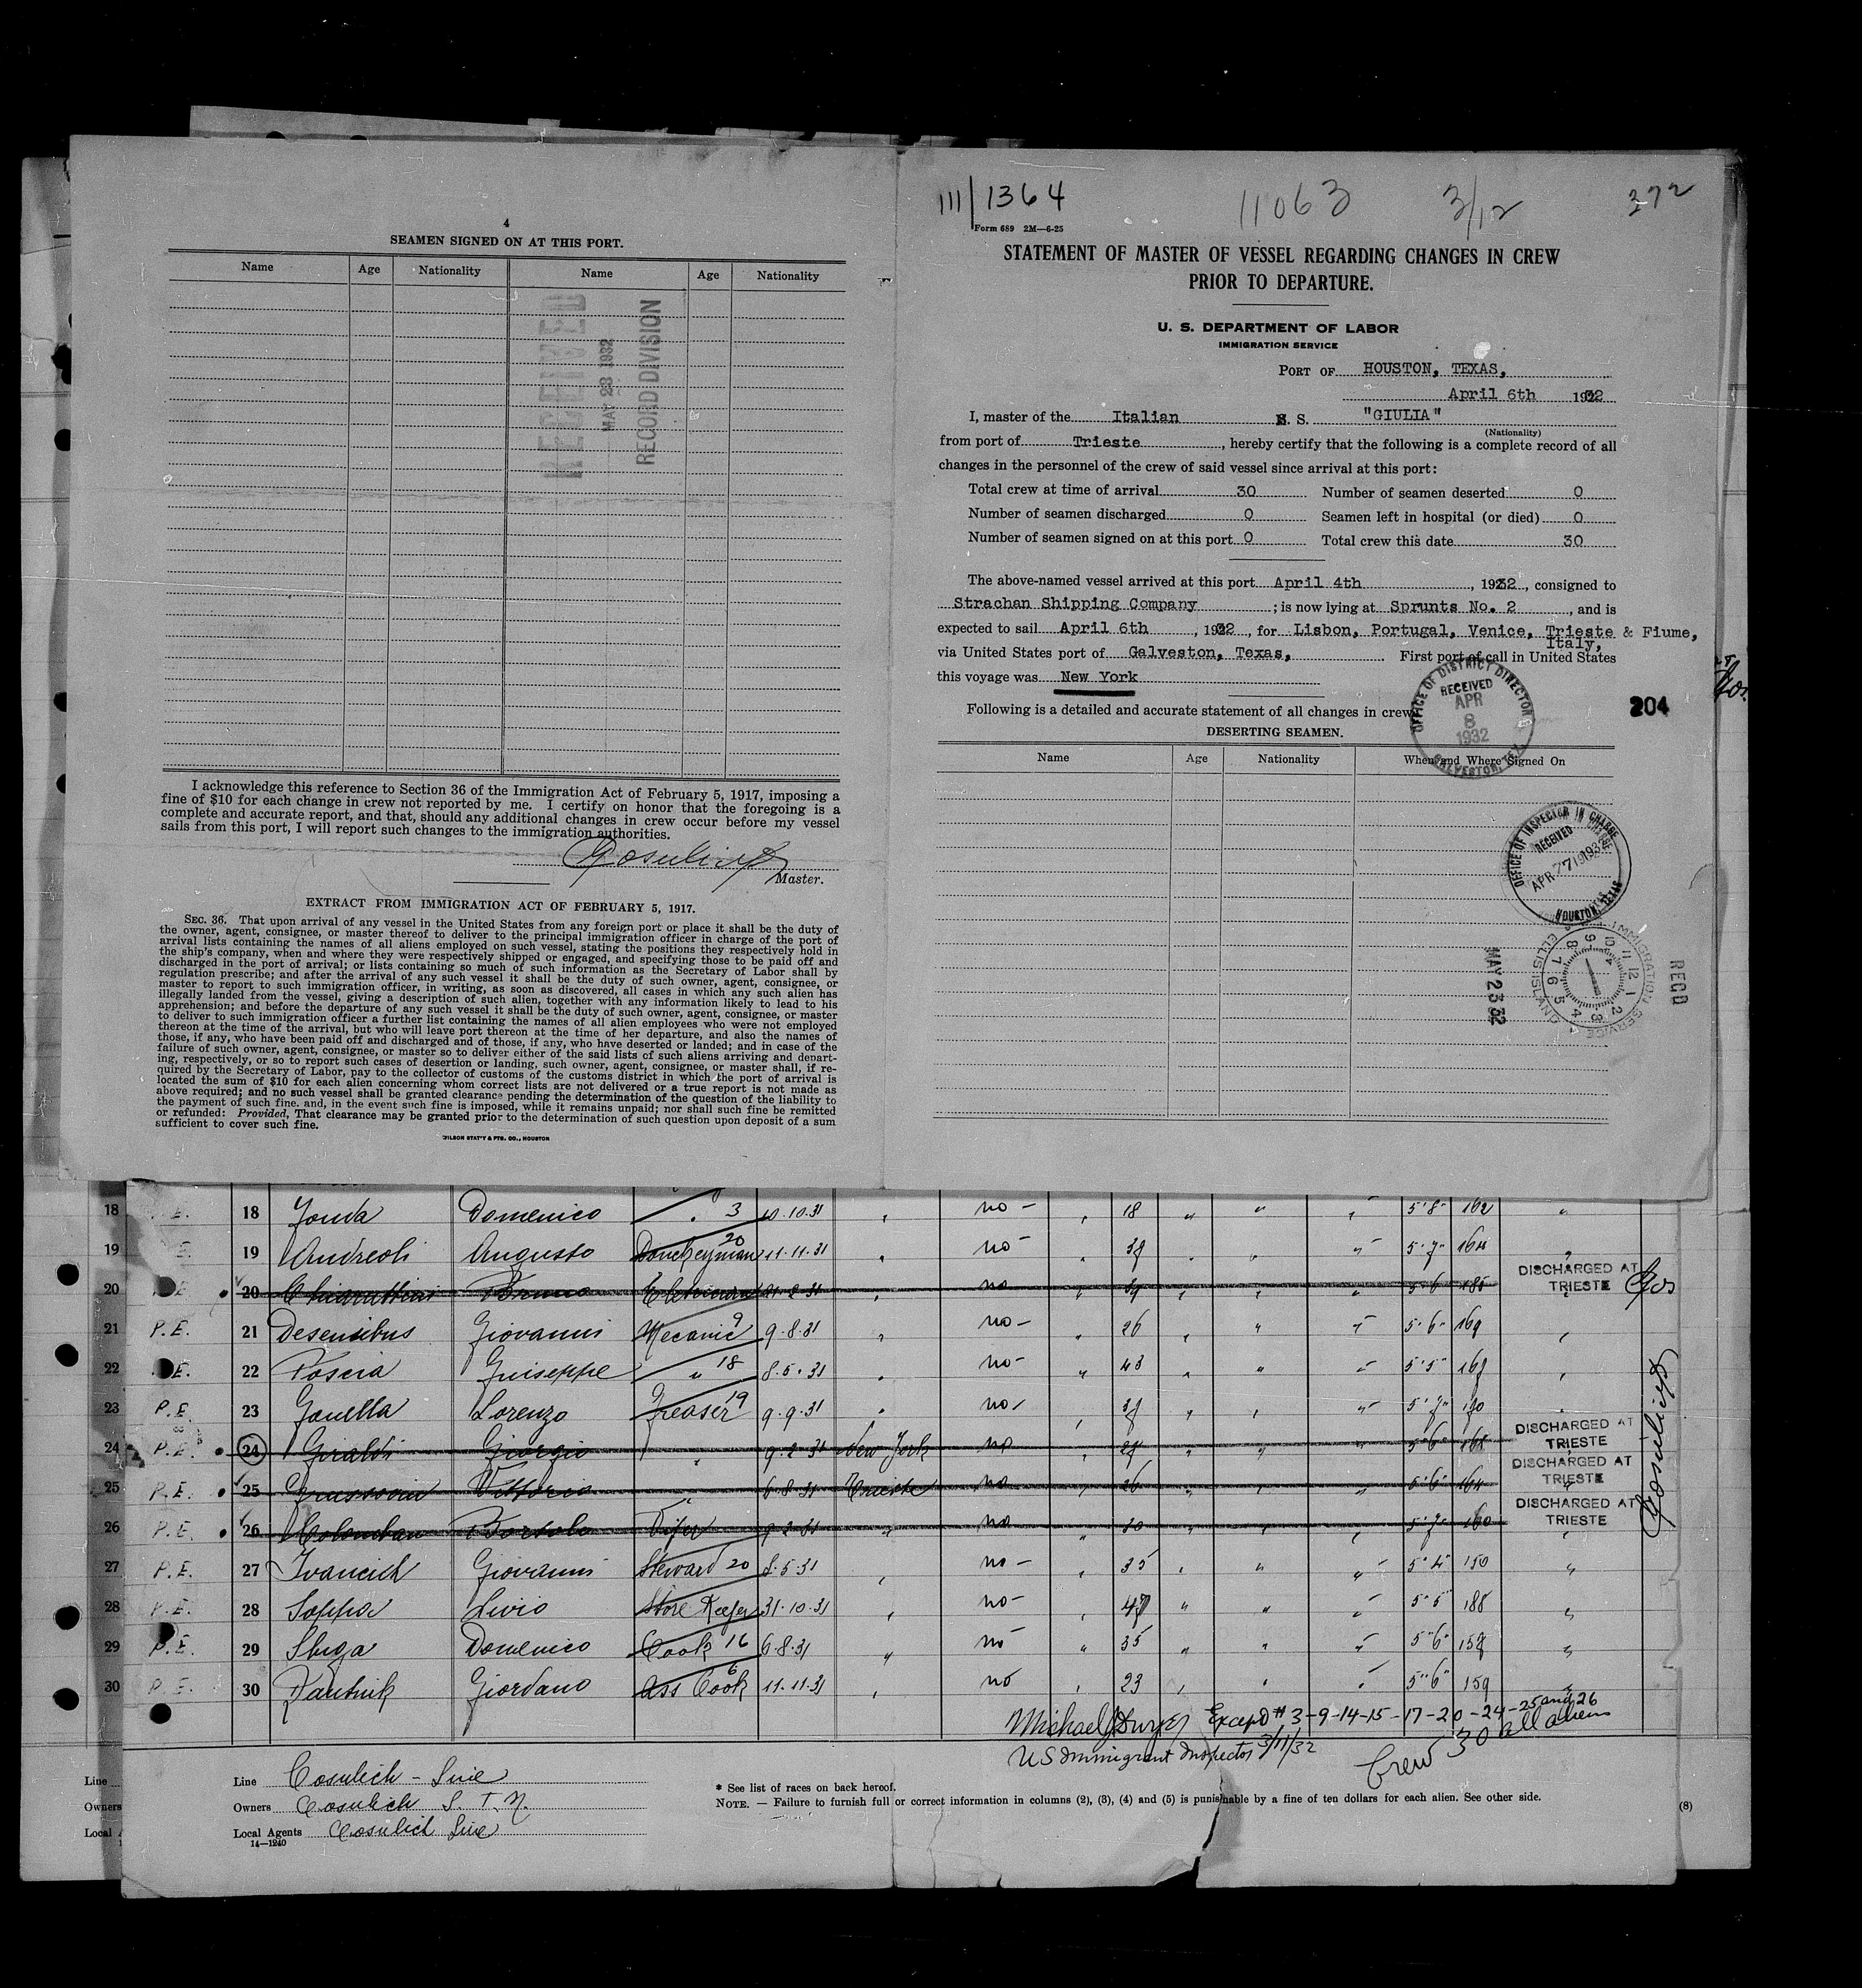 4
SEAMEN SIGNED ON AT THIS PORT.
Name Age Nationality Name Age Nationality
RECEIVED
MAY 23 1932
RECORD DIVISION
I acknowledge this reference to Section 36 of the Immigration Act of February 5, 1917, imposing a
fine of $10 for each change in crew not reported by me. I certify on honor that the foregoing is a
complete and accurate report, and that, should any additional changes in crew occur before my vessel
sails from this port, I will report such changes to the immigration authorities.
Cosulich
Master.
EXTRACT FROM IMMIGRATION ACT OF FEBRUARY 5, 1917.
SEC. 36. That upon arrival of any vessel in the United States from any foreign port or place it shall be the duty of
the owner, agent, consignee, or master thereof to deliver to the principal immigration officer in charge of the port of
arrival lists containing the names of all aliens employed on such vessel, stating the positions they respectively hold in
the ship's company, when and where they were respectively shipped or engaged, and specifying those to be paid off and
discharged in the port of arrival; or lists containing so much of such information as the Secretary of Labor shall by
regulation prescribe; and after the arrival of any such vessel it shall be the duty of such owner, agent, consignee, or
master to report to such immigration officer, in writing, as soon as discovered, all cases in which any such alien has
illegally landed from the vessel, giving a description of such alien, together with any information likely to lead to his
apprehension; and before the departure of any such vessel it shall be the duty of such owner, agent, consignee, or master
to deliver to such immigration officer a further list containing the names of all alien employees who were not employed
thereon at the time of the arrival, but who will leave port thereon at the time of her departure, and also the names of
those, if any, who have been paid off and discharged and of those, if any, who have deserted or landed; and in case of the
failure of such owner, agent, consignee, or master so to deliver either of the said lists of such aliens arriving and depart-
ing, respectively, or so to report such cases of desertion or landing, such owner, agent, consignee, or master shall, if re-
quired by the Secretary of Labor, pay to the collector of customs of the customs district in which the port of arrival is
located the sum of $10 for each alien concerning whom correct lists are not delivered or a true report is not made as
above required; and no such vessel shall be granted clearance pending the determination of the question of the liability to
the payment of such fine. and, in the event such fine is imposed, while it remains unpaid; nor shall such fine be remitted
or refunded: Provided, That clearance may be granted prior to the determination of such question upon deposit of a sum
sufficient to cover such fine.
WILSON STAT'Y & PTG. CO., HOUSTON
111/1364 11063 3/12 372
Form 689 2M—6-25
STATEMENT OF MASTER OF VESSEL REGARDING CHANGES IN CREW
PRIOR TO DEPARTURE.
U. S. DEPARTMENT OF LABOR
IMMIGRATION SERVICE
PORT OF HOUSTON, TEXAS,
April 6th 1932
I, master of the Italian S. S. "GIULIA"
(Nationality)
from port of Trieste, hereby certify that the following is a complete record of all
changes in the personnel of the crew of said vessel since arrival at this port:
Total crew at time of arrival 30 Number of seamen deserted 0
Number of seamen discharged 0 Seamen left in hospital (or died) 0
Number of seamen signed on at this port 0 Total crew this date 30
The above-named vessel arrived at this port April 4th, 1932, consigned to
Strachan Shipping Company; is now lying at Sprunts No. 2, and is
expected to sail April 6th, 1932, for Lisbon, Portugal, Venice, Trieste & Fiume,
Italy,
via United States port of Galveston, Texas, First port of call in United States
this voyage was New York
Following is a detailed and accurate statement of all changes in crew
204
DESERTING SEAMEN.
Name Age Nationality When and Where Signed On
OFFICE OF DISTRICT DIRECTOR
RECEIVED
APR
8
1932
GALVESTON, TEX.
OFFICE OF INSPECTOR IN CHARGE
RECEIVED
APR 7 1932
HOUSTON, TEXAS
IMMIGRATION SERVICE
ELLIS ISLAND
RECD
MAY 23 32
18 18 Domenico " 3 10.10.31 " no - " 18 " " " 5'8" 162 "
19 19 Andreoli Augusto Donckeyman 20 11.11.31 " no - " " " " 5'7" 164 "
20 20 Bruno 39 5'6" 185 DISCHARGED AT TRIESTE Cos
21 P.E. 21 Desenibus Giovanni Mecanic 9 9.8.31 " no - " 26 " " " 5'6" 169 "
22 P.E. 22 Poscia Guiseppe " 18 8.5.31 " no - " 43 " " " 5'5" "
23 P.E. 23 Lorenzo Greaser 19 9.9.31 " no - " " " " 5'7" 170
24 P.E. 24 Giraldi Giorgio " 9.2.31 New York no " " " " 5'6" 168 DISCHARGED AT TRIESTE
25 P.E. 25 Vittorio " 6.8.31 Trieste no " 26 " " " 5'6" 164 DISCHARGED AT TRIESTE
26 P.E. 26 Colomban Bortolo 9.2.31 " no " 30 " " " 5'7" 160 DISCHARGED AT TRIESTE
Cosulich
27 P.E. 27 Ivancich Giovanni Steward 20 8.5.31 " no - " 35 " " " 5'4" 150 "
28 P.E. 28 Livio Store Keeper 31.10.31 " no - " 47 " " " 5'5" 188 "
29 P.E. 29 Sbiga Domenico Cook 16 6.8.31 " no " 35 " " " 5'6" "
30 P.E. 30 Giordano Ass Cook 6 11.11.31 " no " 23 " " " 5'6" 159 "
Michael J Dwyer Except # 3-9-14-15-17-20-24-25 and 26
US Immigrant Inspector 3/11/32 Crew 30 all aliens
Line Line Cosulich - Line
Owners Owners Cosulich S. T. N.
Local A Local Agents Cosulich Line
14—1240
* See list of races on back hereof.
NOTE. — Failure to furnish full or correct information in columns (2), (3), (4) and (5) is punishable by a fine of ten dollars for each alien. See other side.
(8)